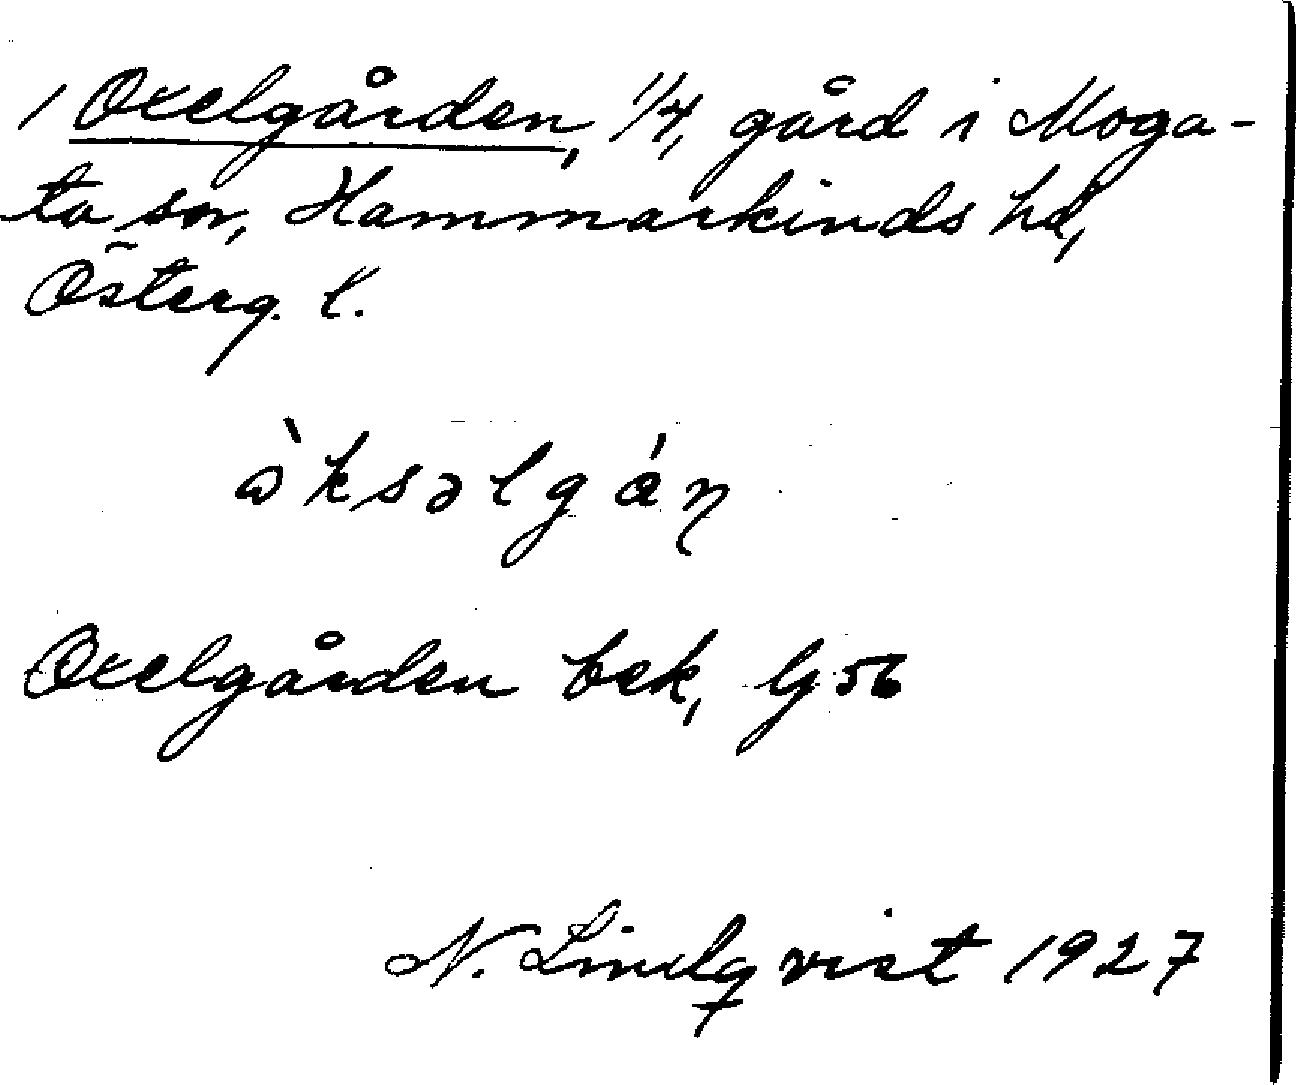 1 Oxelgården, 1/4, gård i Moga-
ta sn, Hammarkinds hd,
Österg. l.
ɷ̀ksəlgán
Oxelgården bek, G 56
N. Lindqvist 1927